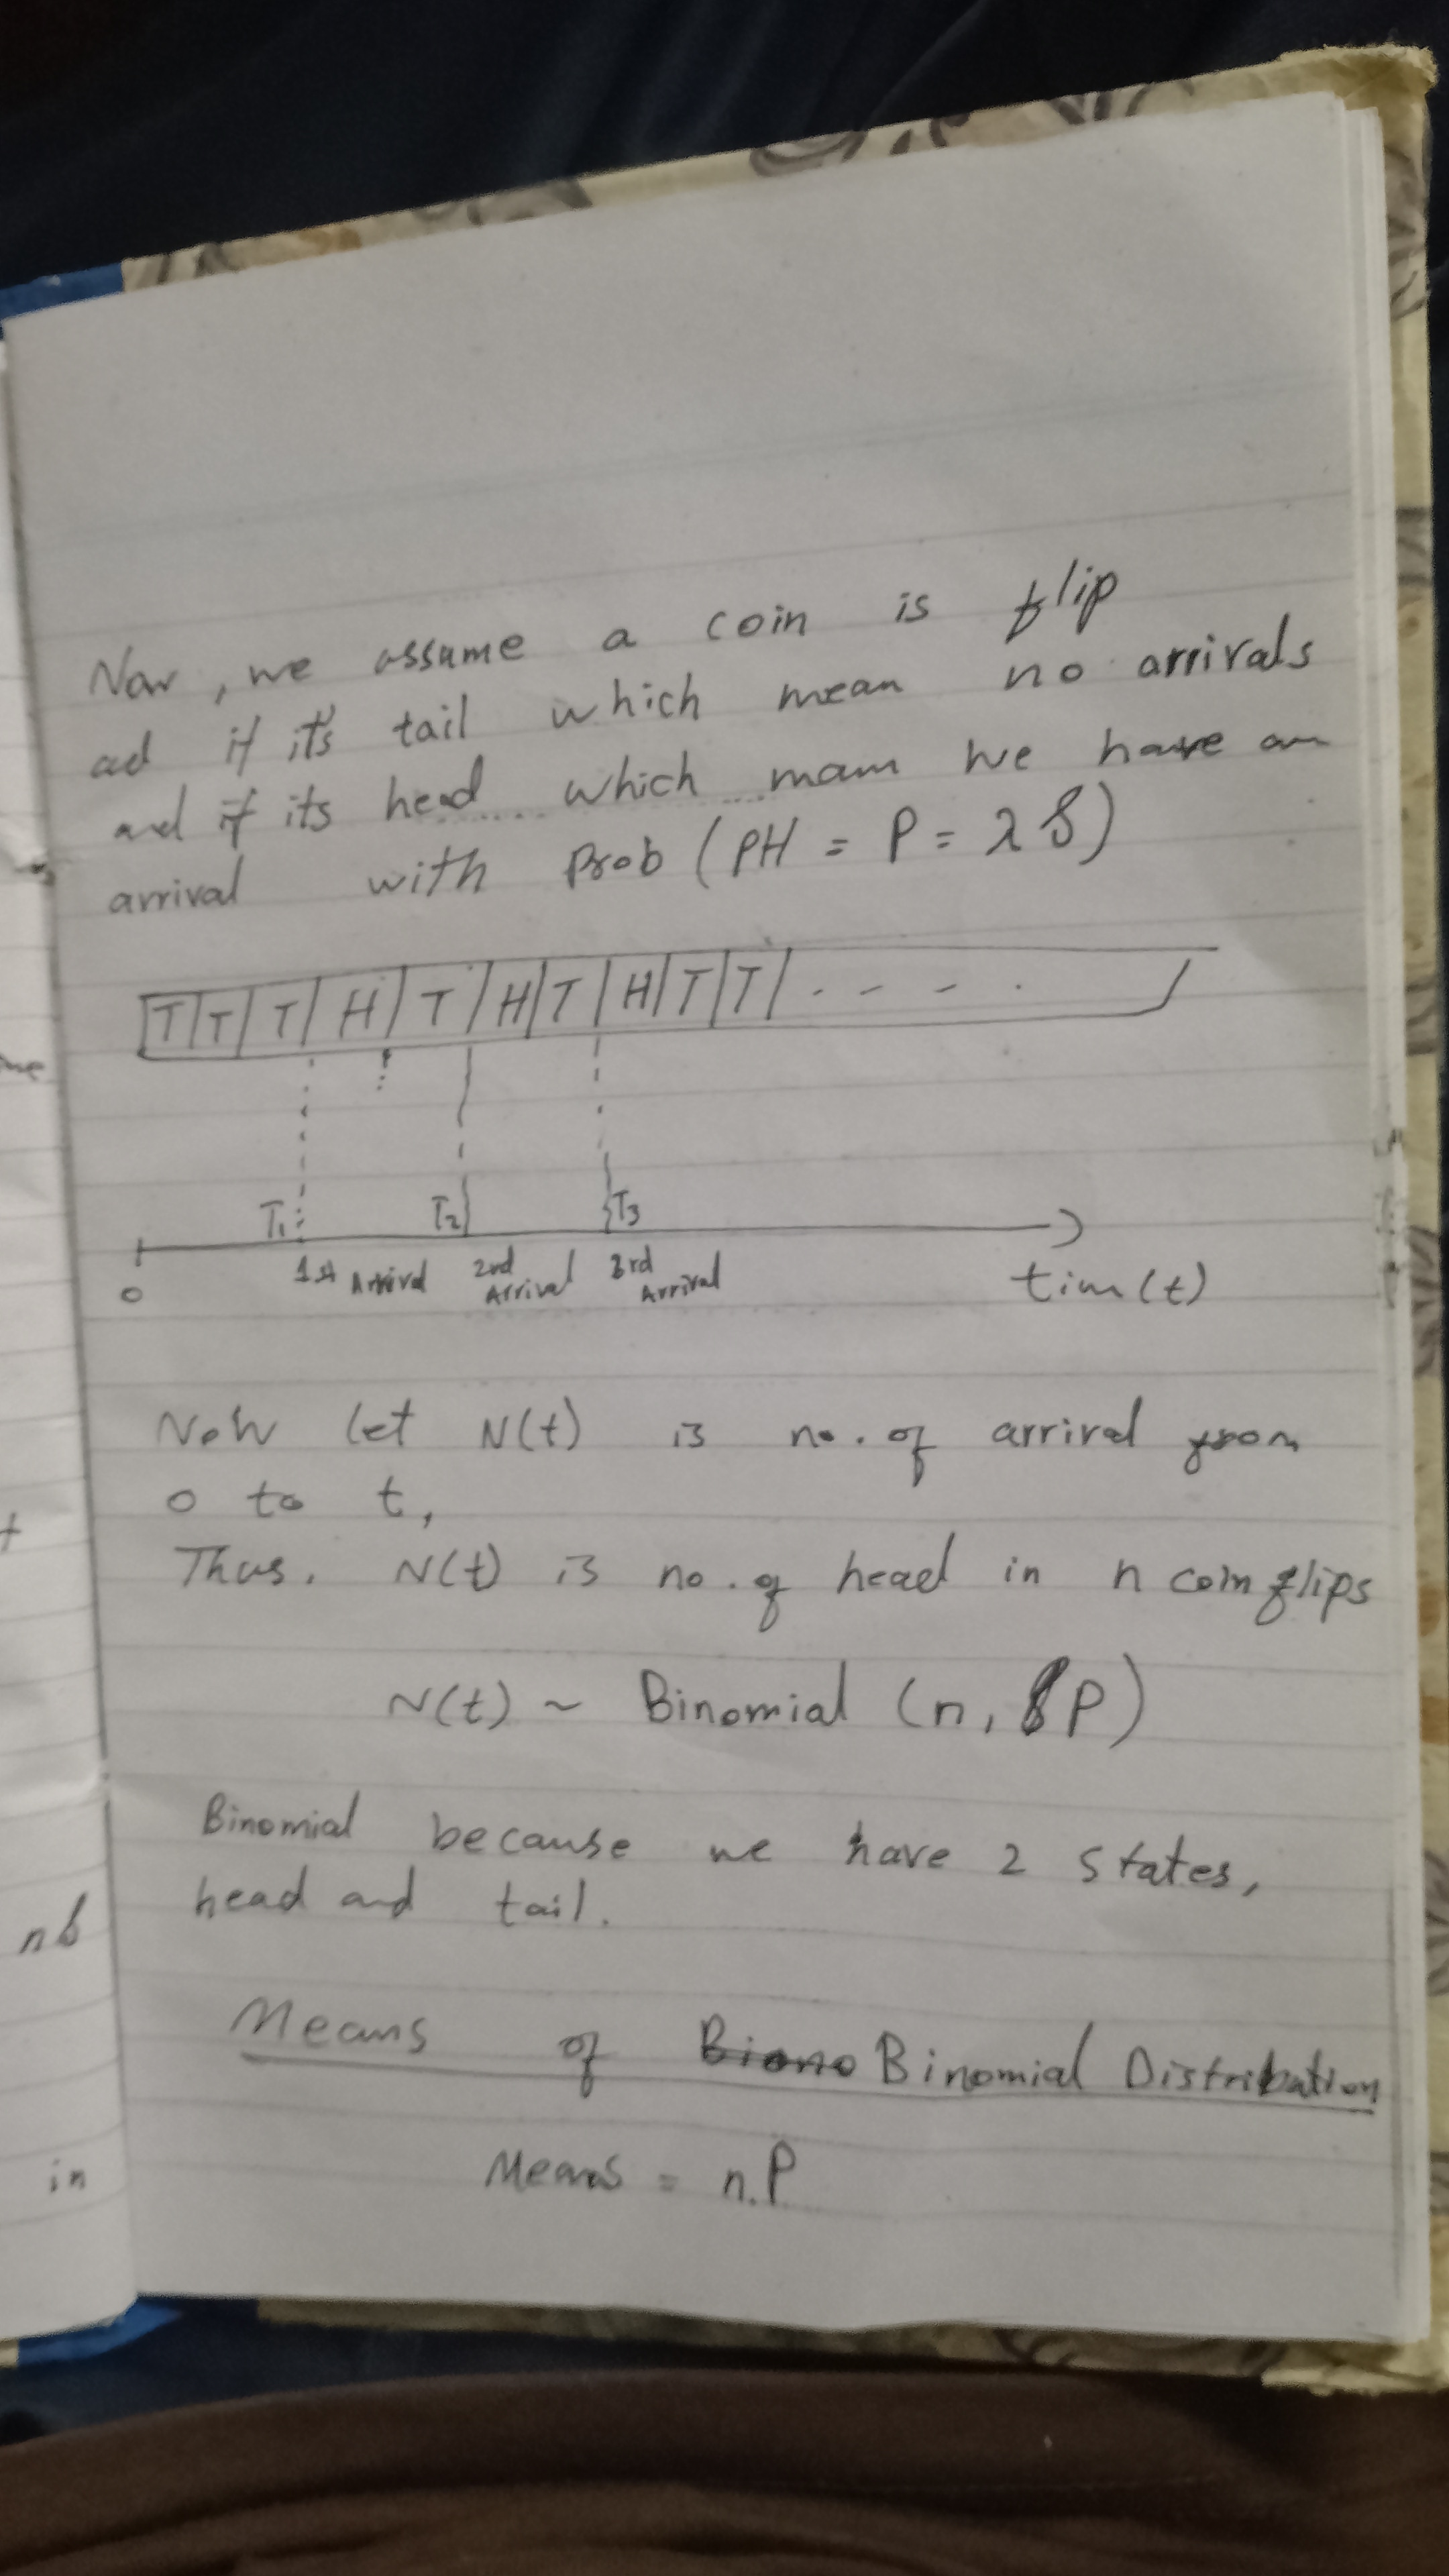 Now, we assume a coin is flip
ad if it's tail which mean no arrivals
and if its head which mam we have an
arrival with Prob (PH = P = λ δ)
T T T H T H T H T T . - - - .
T₁ T₂ T₃
0 1st Arrival 2nd Arrival 3rd Arrival tim(t)
Now let N(t) is no. of arrival from
0 to t,
Thus. N(t) is no. of head in n coin flips
N(t) ~ Binomial (n, P)
Binomial because we have 2 states,
head and tail.
Means of Binomial Distribution
Means = n.P
me
t
nδ
in